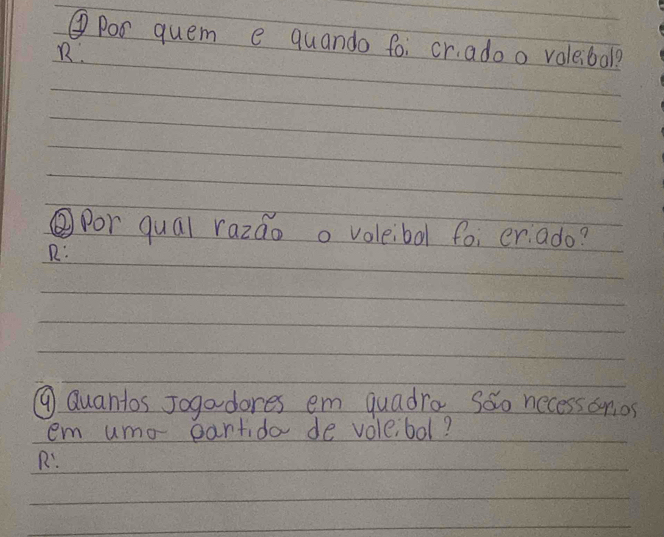 ① Por quem e quando foi criado o voleibol?
R:
② Por qual razão o voleibol foi criado?
R:
④ Quantos Jogadores em quadra são necessários
em uma partida de voleibol?
R: